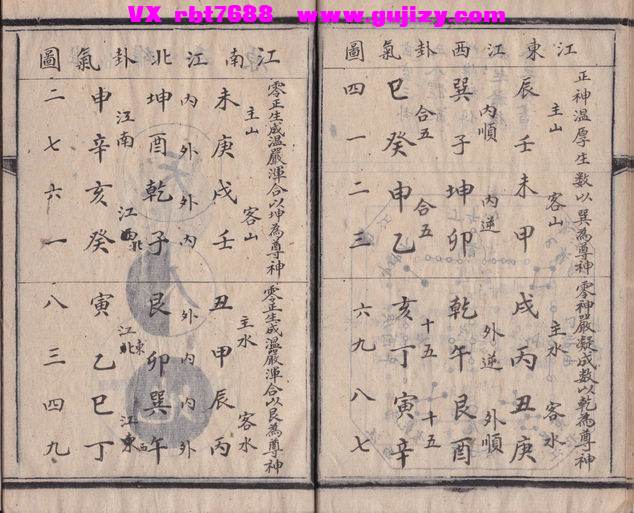 VX rbt7688 www.gujizy.com
江東江西卦氣圖
正神溫厚生數以巽為尊神 零神嚴凝成數以乾為尊神
主山 客山 主水 客水
辰壬未甲 戌丙丑庚
內順 內逆 外逆 外順
巽子坤卯 乾午艮酉
合五 合五 十五 十五
巳癸申乙 亥丁寅辛
四一二三 六九八七
江南江北卦氣圖
零正生成溫嚴渾合以坤為尊神 零正生成溫嚴渾合以艮為尊神
主山 客山 主水 客水
未庚戌壬 丑甲辰丙
內外外內 外內內外
坤酉乾子 艮卯巽午
江南 江西北 江東北 江東
申辛亥癸 寅乙巳丁
二七六一 八三四九